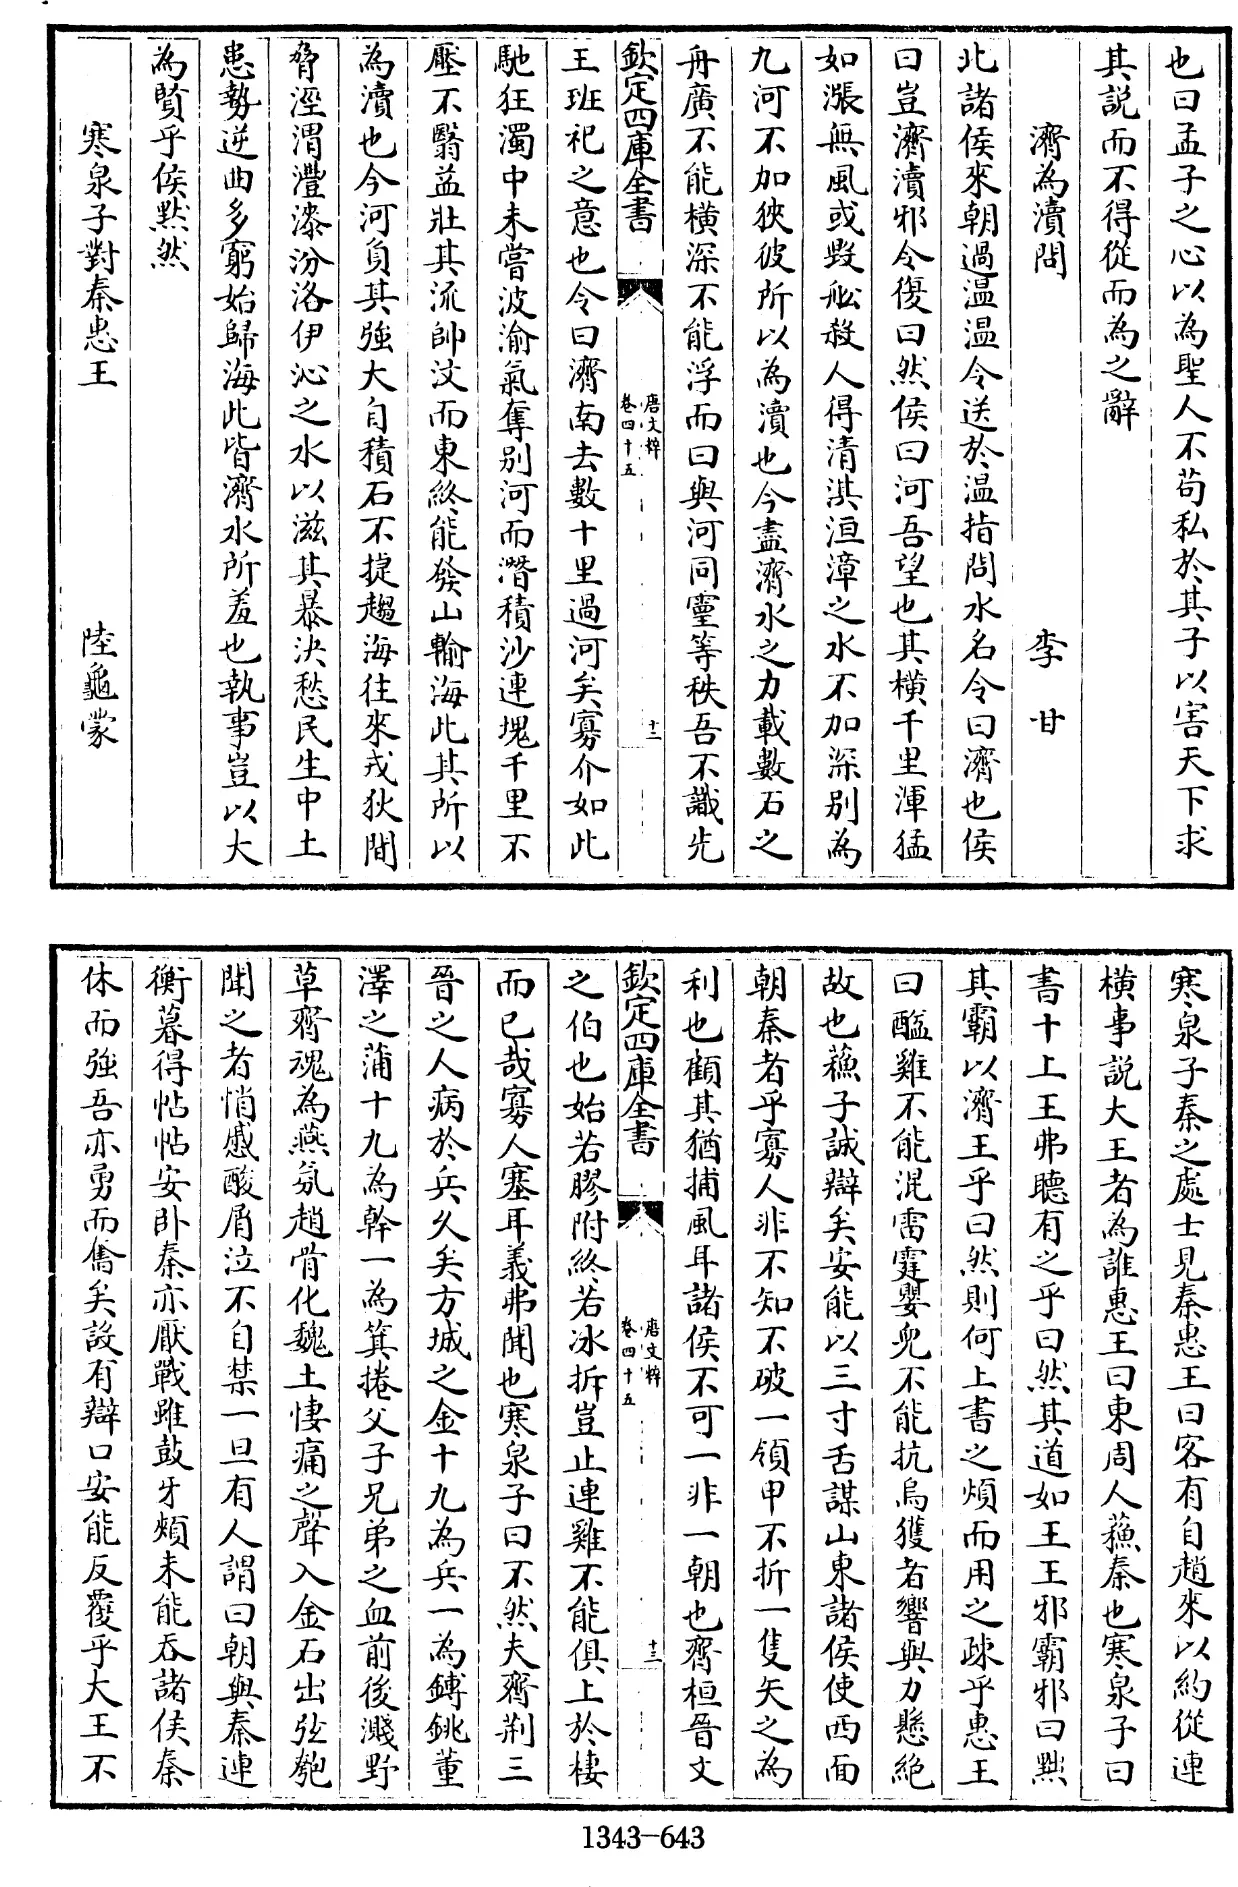 也曰孟子之心以為聖人不苟私於其子以害天下求
其説而不得從而為之辭
濟為瀆問 李甘
北諸侯來朝過温温令送於温指問水名令曰濟也侯
曰豈濟瀆邪令復曰然侯曰河吾望也其横千里渾猛
如漲無風或毁舩殺人得清淇洹漳之水不加深别為
九河不加狹彼所以為瀆也今盡濟水之力載數石之
舟廣不能横深不能浮而曰與河同靈等秩吾不識先
欽定四庫全書
唐文粹
卷四十五
十二
王班祀之意也令曰濟南去數十里過河矣寡介如此
馳狂濁中未嘗波渝氣奪别河而潛積沙連塊千里不
壓不翳益壯其流帥汶而東終能發山輸海此其所以
為瀆也今河負其強大自積石不捷趨海往來戎狄間
脅涇渭灃漆汾洛伊沁之水以滋其暴決愁民生中土
患勢逆曲多窮始歸海此皆濟水所羞也執事豈以大
為賢乎侯黙然
寒泉子對秦惠王 陸龜蒙
寒泉子秦之處士見秦惠王曰客有自趙來以約從連
横事説大王者為誰惠王曰東周人蘓秦也寒泉子曰
書十上王弗聽有之乎曰然其道如王王邪霸邪曰黙
其霸以濟王乎曰然則何上書之煩而用之疎乎惠王
曰醯雞不能混雷霆嬰兒不能抗烏獲者響與力懸絶
故也蘓子誠辯矣安能以三寸舌謀山東諸侯使西面
朝秦者乎寡人非不知不破一領甲不折一隻矢之為
利也顧其猶捕風耳諸侯不可一非一朝也齊桓晉文
欽定四庫全書
唐文粹
卷四十五
十三
之伯也始若膠附終若冰拆豈止連雞不能俱上於棲
而已哉寡人塞耳義弗聞也寒泉子曰不然夫齊荆三
晉之人病於兵久矣方城之金十九為兵一為鏄銚董
澤之蒲十九為幹一為箕捲父子兄弟之血前後濺野
草齊魂為燕氛趙骨化魏土悽痛之聲入金石出弦匏
聞之者悄慼酸屑泣不自禁一旦有人謂曰朝與秦連
衡暮得帖帖安卧秦亦厭戰雖鼓牙頰未能吞諸侯秦
休而強吾亦勇而奮矣設有辯口安能反覆乎大王不
1343-643